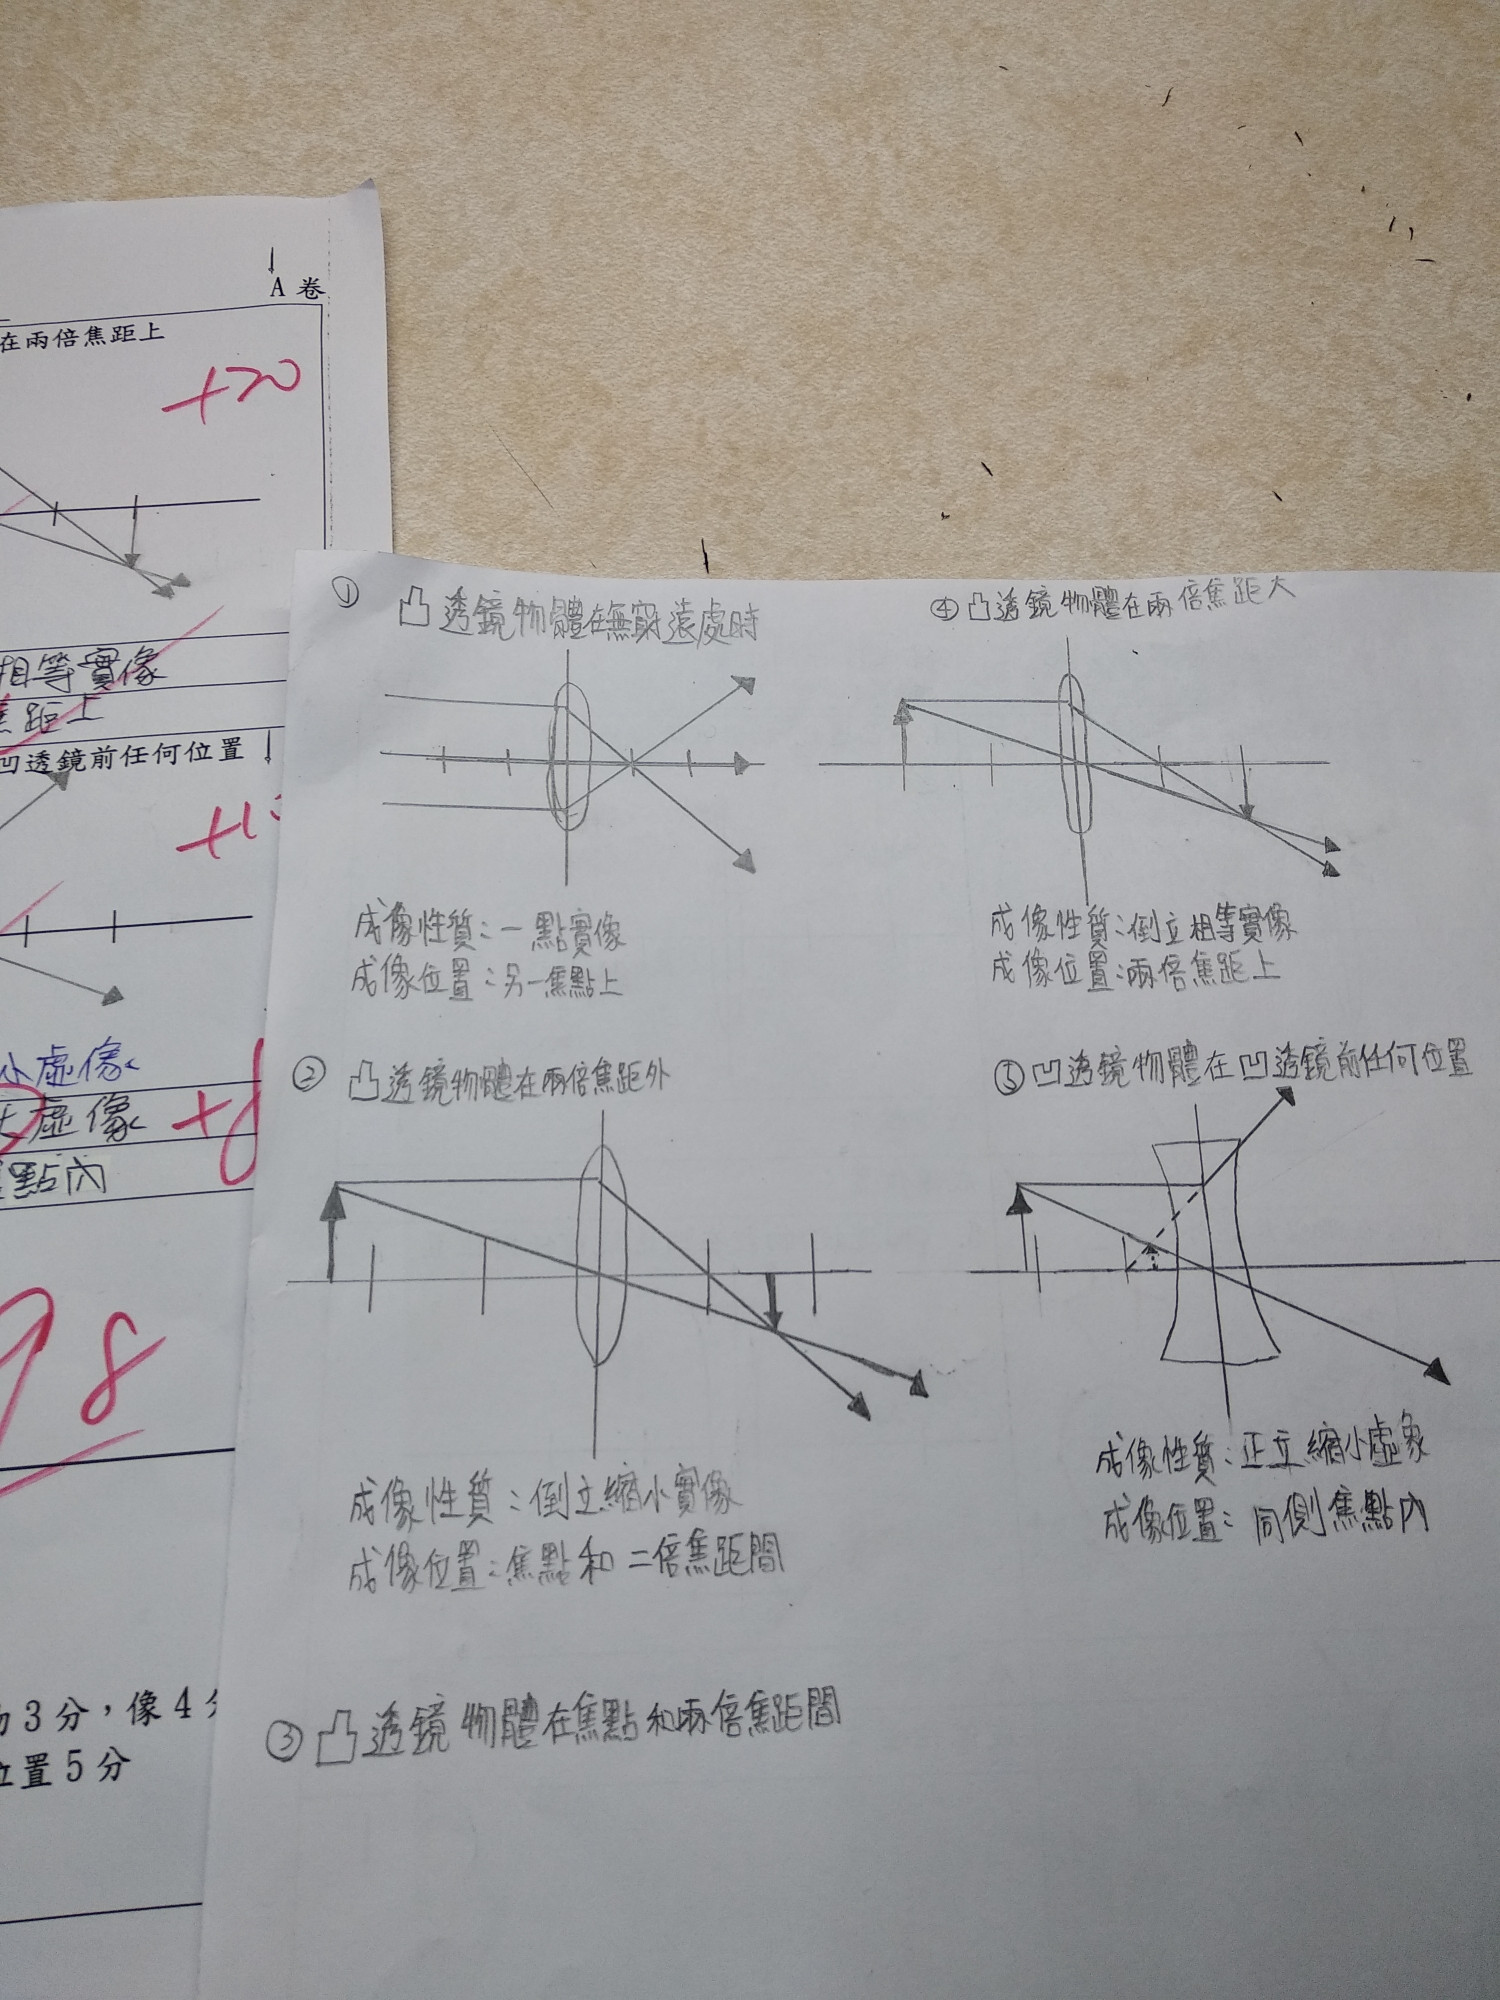 A 卷
在兩倍焦距上
+20
相等實像
焦距上
凹透鏡前任何位置
小虛像
虛像
+8
焦點內
98
3分，像4分
位置5分
① 凸透鏡物體在無窮遠處時
成像性質：一點實像
成像位置：另一焦點上
② 凸透鏡物體在兩倍焦距外
成像性質：倒立縮小實像
成像位置：焦點和二倍焦距間
③ 凸透鏡物體在焦點和兩倍焦距間
④ 凸透鏡物體在兩倍焦距大
成像性質：倒立相等實像
成像位置：兩倍焦距上
⑤ 凹透鏡物體在凹透鏡前任何位置
成像性質：正立縮小虛象
成像位置：同側焦點內